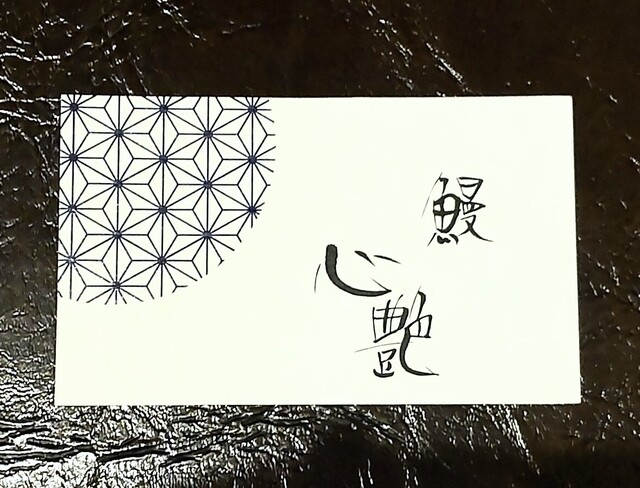 鰻
心艶